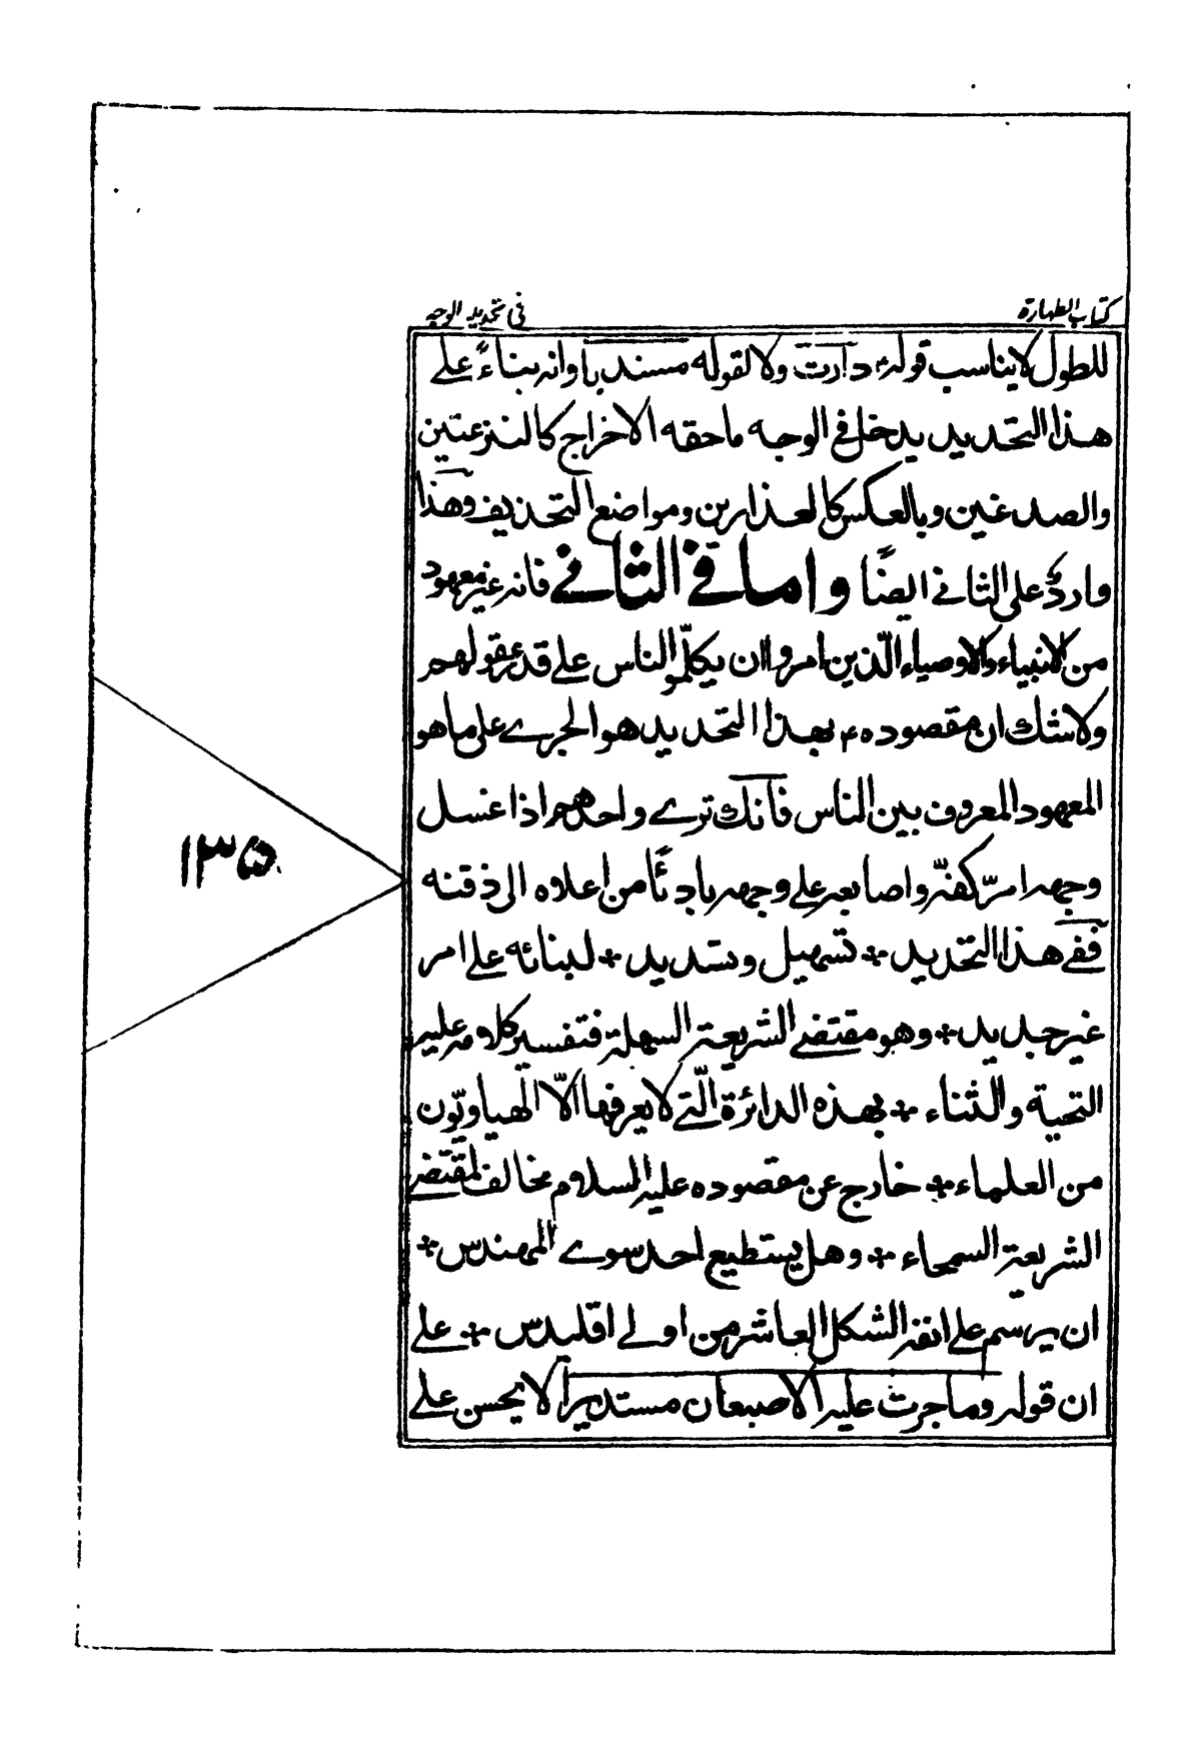 كتاب الطهارة
في تحديد الوجه
للطول لا يناسب قوله دارت ولا لقوله مستديرا وانه بناءً على
هذا التحديد يدخل في الوجه ما حقه الاخراج كالنزعتين
والصدغين وبالعكس كالعذارين ومواضع التحذيف وهذا
واردٌ على الثاني ايضًا واما في الثاني فانه غير معهود
من الانبياء والاوصياء الّذين امروا ان يكلّموا الناس على قدر عقولهم
ولا شك ان مقصوده بهذا التحديد هو الجرى على ما هو
المعهود المعروف بين الناس فانك ترى واحدهم اذا غسل
وجهه امرّ كفّه واصابعه على وجهه بادئًا من اعلاه الى ذقنه
ففي هذا التحديد تسهيل وتسديد لبنائه على امر
غير جديد وهو مقتضى الشريعة السهلة فتفسير كلامه عليه
التحية والثناء بهذه الدائرة الّتي لا يعرفها الاّ الهياويّون
من العلماء خارج عن مقصوده عليه السلام مخالف لمقتضى
الشريعة السمحاء وهل يستطيع احد سوى المهندس
ان يرسم على انفه الشكل العاشر من اولى اقليدس على
ان قوله وما جرت عليه الاصبعان مستديرا لا يحسن على
١٣٥